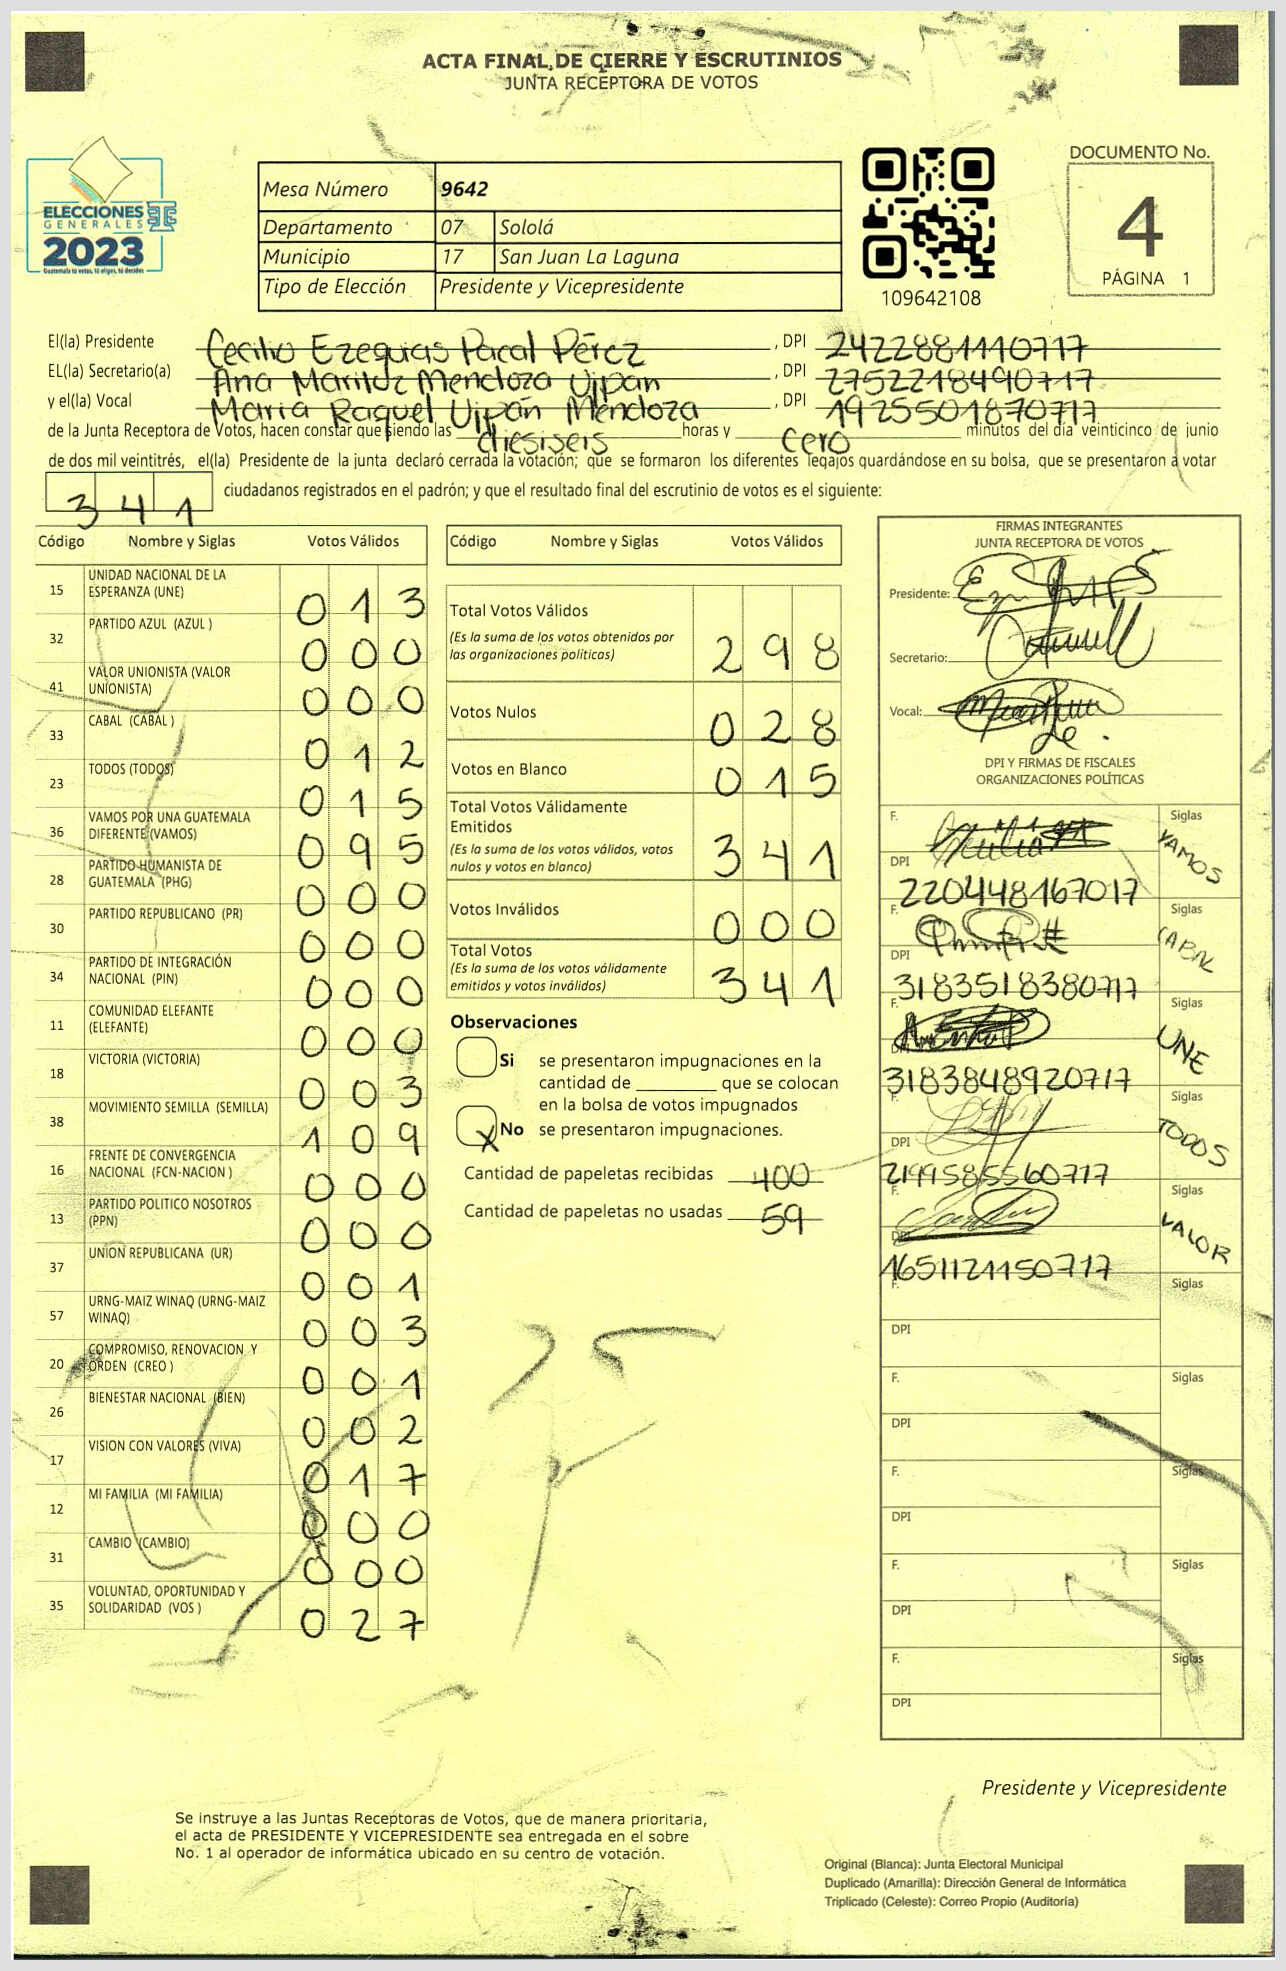 ACTA FINAL DE CIERRE Y ESCRUTINIOS
JUNTA RECEPTORA DE VOTOS
DOCUMENTO No.
4
PÁGINA 1
ELECCIONES
GENERALES
2023
Guatemala tú votas, tú eliges, tú decides
Mesa Número 9642
Departamento 07 Sololá
Municipio 17 San Juan La Laguna
Tipo de Elección Presidente y Vicepresidente
109642108
El(la) Presidente Cecilio Ezequias Pacal Pérez , DPI 2422881110717
EL(la) Secretario(a) Ana Mariluz Mendoza Ujpán , DPI 2752218490717
y el(la) Vocal María Raquel Ujpán Mendoza , DPI 1925501870717
de la Junta Receptora de Votos, hacen constar que siendo las diesiseis horas y cero minutos del día veinticinco de junio
de dos mil veintitrés, el(la) Presidente de la junta declaró cerrada la votación; que se formaron los diferentes legajos guardándose en su bolsa, que se presentaron a votar
341 ciudadanos registrados en el padrón; y que el resultado final del escrutinio de votos es el siguiente:
Código Nombre y Siglas Votos Válidos
15 UNIDAD NACIONAL DE LA
ESPERANZA (UNE) 013
32 PARTIDO AZUL (AZUL ) 000
41 VALOR UNIONISTA (VALOR
UNIONISTA) 000
33 CABAL (CABAL ) 012
23 TODOS (TODOS) 015
36 VAMOS POR UNA GUATEMALA
DIFERENTE (VAMOS) 095
28 PARTIDO HUMANISTA DE
GUATEMALA (PHG) 000
30 PARTIDO REPUBLICANO (PR) 000
34 PARTIDO DE INTEGRACIÓN
NACIONAL (PIN) 000
11 COMUNIDAD ELEFANTE
(ELEFANTE) 000
18 VICTORIA (VICTORIA) 003
38 MOVIMIENTO SEMILLA (SEMILLA) 109
16 FRENTE DE CONVERGENCIA
NACIONAL (FCN-NACION ) 000
13 PARTIDO POLITICO NOSOTROS
(PPN) 000
37 UNION REPUBLICANA (UR) 001
57 URNG-MAIZ WINAQ (URNG-MAIZ
WINAQ) 003
20 COMPROMISO, RENOVACION Y
ORDEN (CREO ) 001
26 BIENESTAR NACIONAL (BIEN) 002
17 VISION CON VALORES (VIVA) 017
12 MI FAMILIA (MI FAMILIA) 000
31 CAMBIO (CAMBIO) 000
35 VOLUNTAD, OPORTUNIDAD Y
SOLIDARIDAD (VOS ) 027
Código Nombre y Siglas Votos Válidos
Total Votos Válidos
(Es la suma de los votos obtenidos por
las organizaciones políticas) 298
Votos Nulos 028
Votos en Blanco 015
Total Votos Válidamente
Emitidos
(Es la suma de los votos válidos, votos
nulos y votos en blanco) 341
Votos Inválidos 000
Total Votos
(Es la suma de los votos válidamente
emitidos y votos inválidos) 341
Observaciones
Si se presentaron impugnaciones en la
cantidad de ________ que se colocan
en la bolsa de votos impugnados
X No se presentaron impugnaciones.
Cantidad de papeletas recibidas 400
Cantidad de papeletas no usadas 59
FIRMAS INTEGRANTES
JUNTA RECEPTORA DE VOTOS
Presidente:
Secretario:
Vocal:
DPI Y FIRMAS DE FISCALES
ORGANIZACIONES POLÍTICAS
F. Siglas VAMOS
DPI 220448167017
F. Siglas CABAL
DPI 3183518380717
F. Siglas UNE
DPI 3183848920717
F. Siglas TODOS
DPI 2199585560717
F. Siglas VALOR
DPI 1651121150717
F. Siglas
DPI
F. Siglas
DPI
F. Siglas
DPI
F. Siglas
DPI
F. Siglas
DPI
Presidente y Vicepresidente
Se instruye a las Juntas Receptoras de Votos, que de manera prioritaria,
el acta de PRESIDENTE Y VICEPRESIDENTE sea entregada en el sobre
No. 1 al operador de informática ubicado en su centro de votación.
Original (Blanca): Junta Electoral Municipal
Duplicado (Amarilla): Dirección General de Informática
Triplicado (Celeste): Correo Propio (Auditoría)